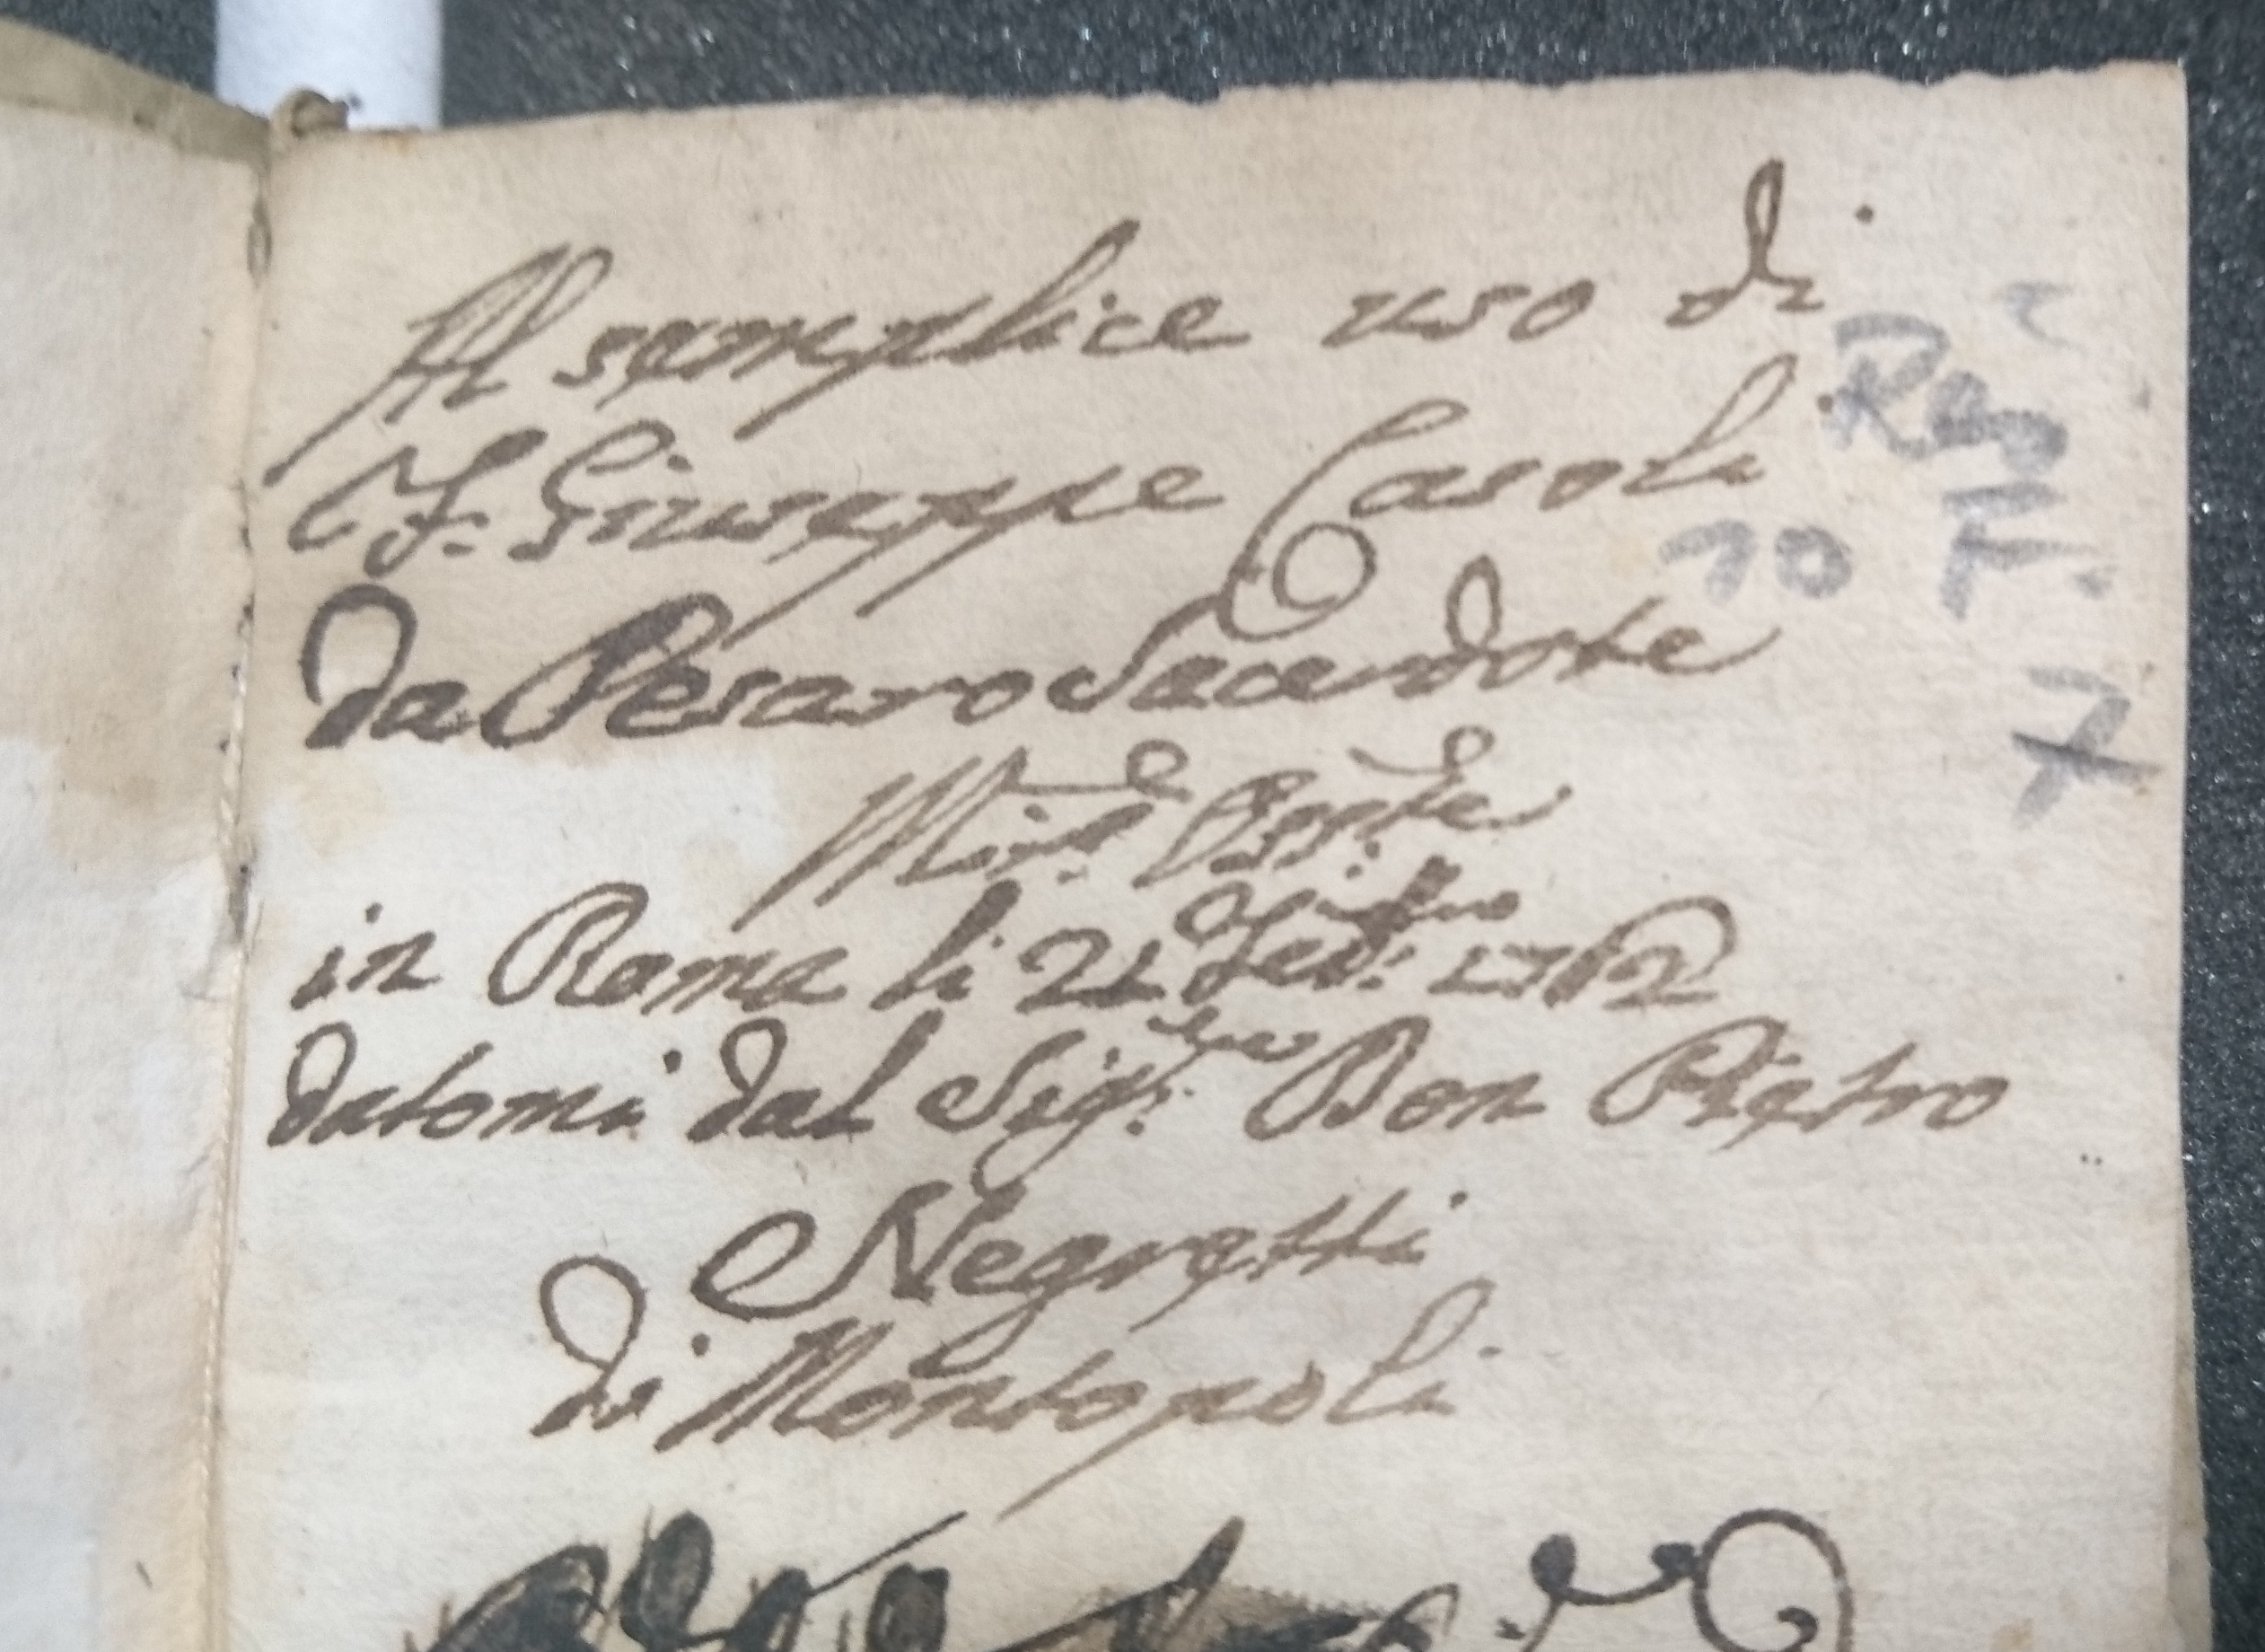 Al semplice uso di
F. Giuseppe Casoli
da Pesaro Sacerdote
Min. Oss.te
in Roma li 21 1762
datomi dal Sig.r Don Pietro
Negretti
di Montopoli
10 F.
7